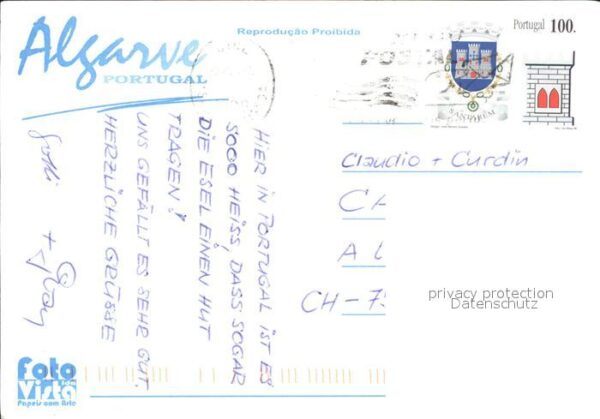 Algarve
PORTUGAL
Reprodução Proibida
Portugal 100.
SANTARÉM
HIER IN PORTUGAL IST ES
SOOO HEISS, DASS SOGAR
DIE ESEL EINEN HUT
TRAGEN!
UNS GEFÄLLT ES SEHR GUT.
HERZLICHE GRÜSSE
Claudio + Curdin
CH-7
privacy protection
Datenschutz
Foto
Vista
Papeis com Arte